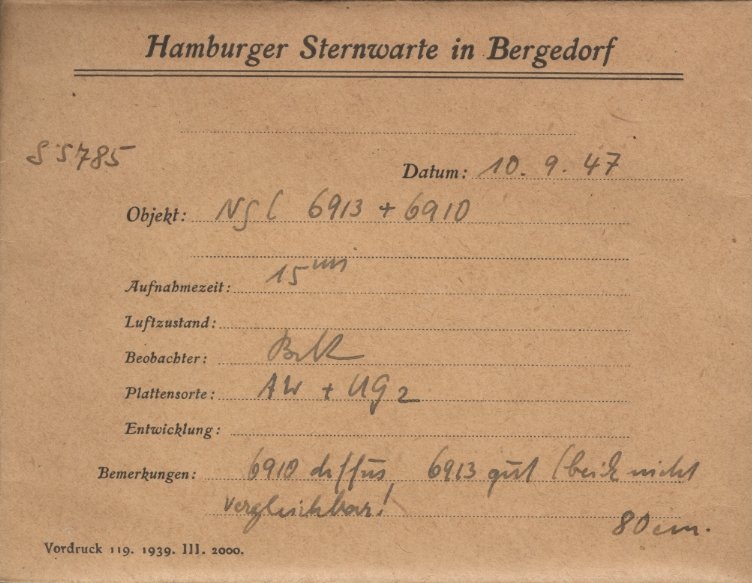 Hamburger Sternwarte in Bergedorf
SS785
Datum: 10. 9. 47
Objekt: NGC 6913 + 6910
Aufnahmezeit: 15 m
Luftzustand:
Beobachter:
Plattensorte: AW + UG2
Entwicklung:
Bemerkungen: 6910 diffus, 6913 gut (beide nicht
vergleichbar!
80 cm.
Vordruck 119. 1939. III. 2000.